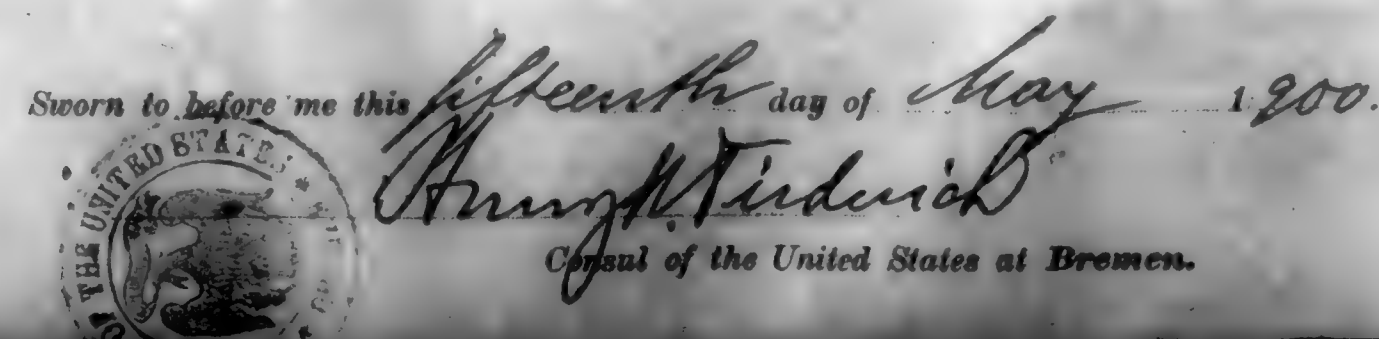 Sworn to before me this fifteenth day of May 1900.
Henry W. Diederich
Consul of the United States at Bremen.
THE UNITED STATES